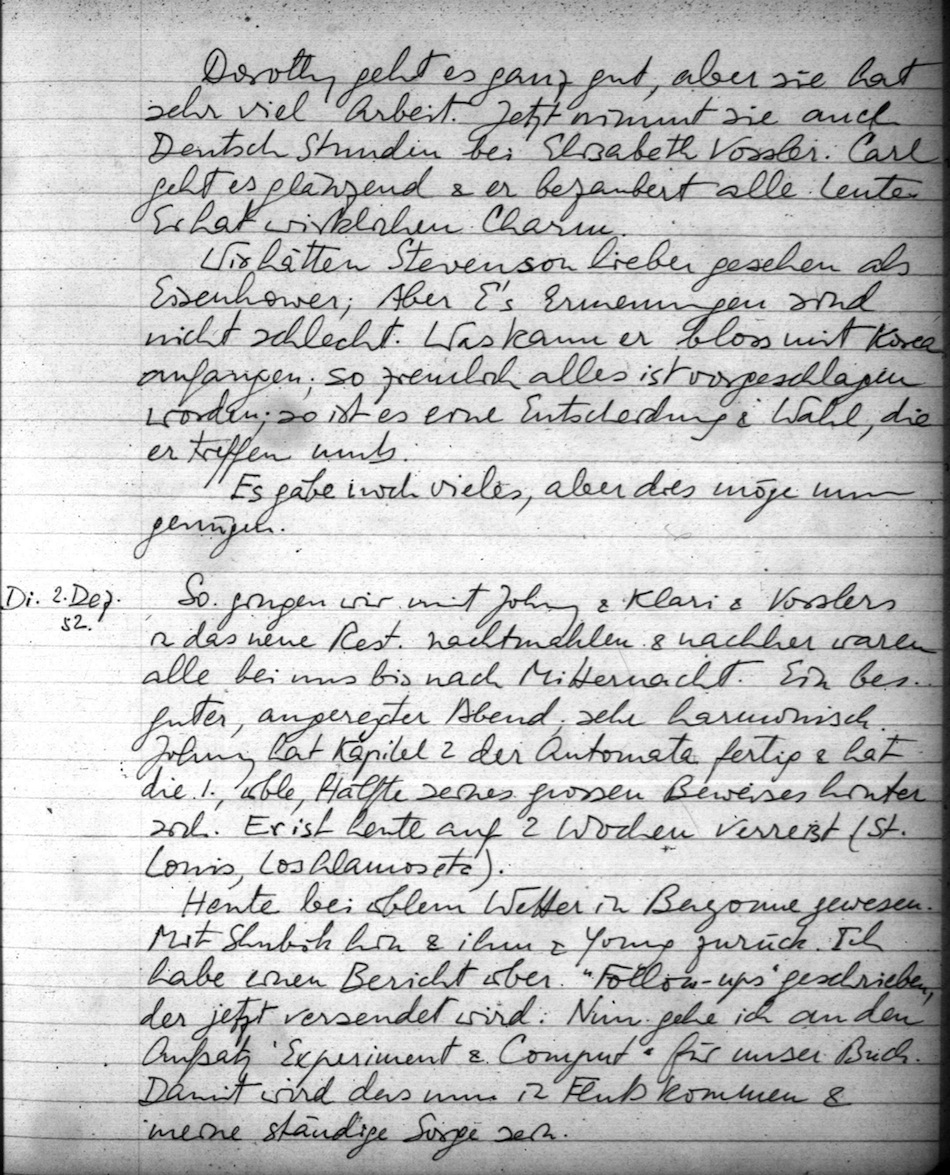 Dorothy geht es ganz gut, aber sie hat
sehr viel Arbeit. Jetzt nimmt sie auch
Deutsch Stunden bei Elisabeth Vossler. Carl
geht es glänzend & er bezaubert alle Leute.
Er hat wirklichen Charm.
Wir hätten Stevenson lieber gesehen als
Eisenhower; Aber E's Ernennungen sind
nicht schlecht. Was kann er bloss mit Korea
anfangen; so ziemlich alles ist vorgeschlagen
worden; so ist es eine Entscheidung & Wahl, die
er treffen muß.
Es gäbe noch vieles, aber dies möge nun
genügen.
Di. 2. Dez.
52.
So gingen wir mit Johny & Klari & Vosslers
in das neue Rest. nachtmahlen & nachher waren
alle bei uns bis nach Mitternacht. Ein bes.
guter, angeregter Abend; sehr harmonisch.
Johny hat Kapitel 2 der Automata fertig & hat
die 1., üble, Hälfte seines grossen Beweises hinter
sich. Er ist heute auf 2 Wochen verreist (St.
Louis, Los Alamos etc).
Heute bei üblem Wetter in Bayonne gewesen.
Mit Shubik hin & ihm & Young zurück. Ich
habe einen Bericht über "Follow-ups" geschrieben,
der jetzt versendet wird. Nun gehe ich an den
Aufsatz "Experiment & Comput" für unser Buch.
Damit wird das nun in Fluß kommen &
meine ständige Sorge sein.